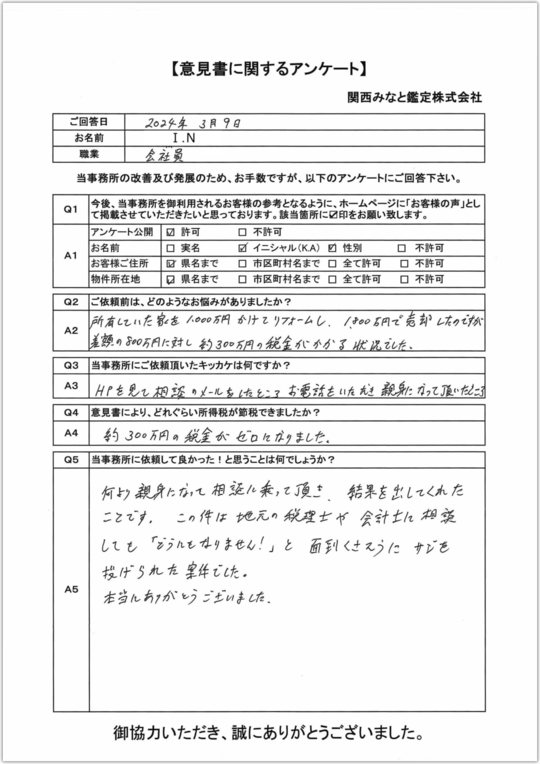 【意見書に関するアンケート】
関西みなと鑑定株式会社
ご回答日 2024年 3月9日
お名前 I.N
職業 会社員
当事務所の改善及び発展のため、お手数ですが、以下のアンケートにご回答下さい。
Q1 今後、当事務所を御利用されるお客様の参考となるように、ホームページに「お客様の声」とし
て掲載させていただきたいと思っております。該当箇所に☑印をお願い致します。
A1
アンケート公開 ☑ 許可 □ 不許可
お名前 □ 実名 ☑ イニシャル(K.A) ☑ 性別 □ 不許可
お客様ご住所 ☑ 県名まで □ 市区町村名まで □ 全て許可 □ 不許可
物件所在地 ☑ 県名まで □ 市区町村名まで □ 全て許可 □ 不許可
Q2 ご依頼前は、どのようなお悩みがありましたか?
A2 所有していた家を1,000万円かけてリフォームし、1,800万円で売却したのですが
差額の800万円に対し約300万円の税金がかかる状況でした。
Q3 当事務所にご依頼頂いたキッカケは何ですか?
A3 HPを見て相談のメールをしたところ お電話をいただき 親身になって頂いたところ
Q4 意見書により、どれぐらい所得税が節税できましたか?
A4 約300万円の税金がゼロになりました。
Q5 当事務所に依頼して良かった!と思うことは何でしょうか?
A5
何より親身になって相談に乗って頂き、結果を出してくれた
ことです。この件は地元の税理士や会計士に相談
しても「どうにもなりません!」と面倒くさそうにサジを
投げられた案件でした。
本当にありがとうございました。
御協力いただき、誠にありがとうございました。